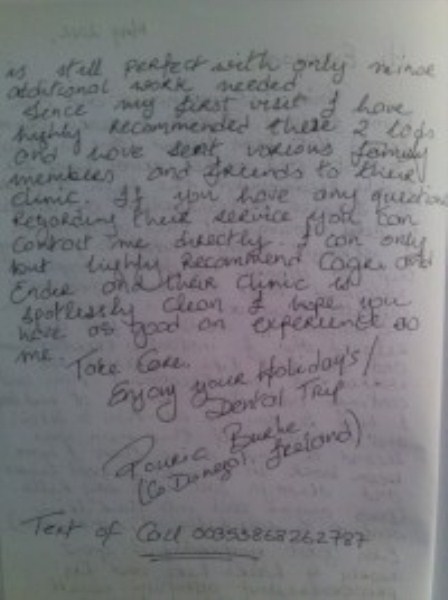 is still perfect with only minor
additional work needed.
Since my first visit I have
highly recommended these 2 lads
and have sent various family
members and friends to their
clinic. If you have any questions
regarding their service you can
contact me directly. I can only
but highly recommend Cagri and
Ender and their clinic is
spotlessly clean. I hope you
have as good an experience as
me.
Take Care.
Enjoy your Holiday's/
Dental Trip
Pauric Burke
(Co Donegal. Ireland)
Text of Call 00353868262787